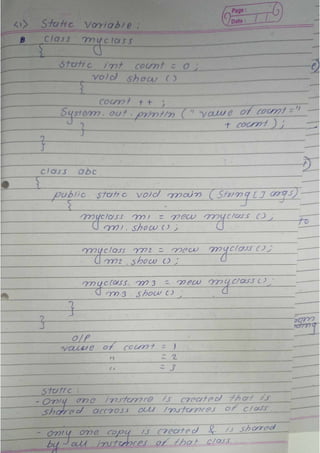 Page:
Date:
<1> Static variable:
class myclass
{
static int count = 0;
void show ()
{
count ++ ;
System.out.println ("value of count="
+ count);
}
}
class abc
{
public static void main (String [] args)
{
myclass m1 = new myclass ();
m1.show ();
myclass m2 = new myclass ();
m2.show ();
myclass m3 = new myclass ();
m3.show ();
}
}
O/P
value of count = 1
" = 2
" = 3
Static:
- Only one instance is created that is
shared accross all instances of class.
- only one copy is created & is shared
by all instances of that class
to